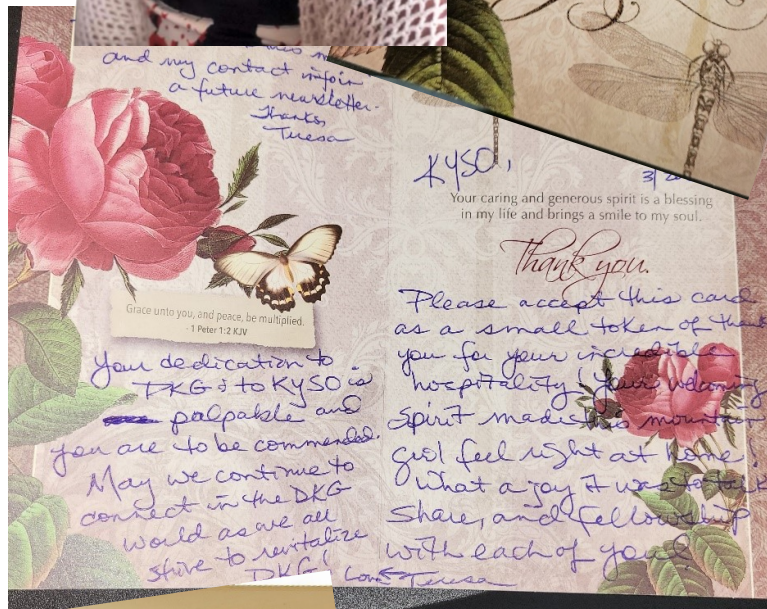 and my contact info in
a future newsletter.
Thanks,
Teresa
Grace unto you, and peace, be multiplied.
- 1 Peter 1:2 KJV
Your dedication to
DKG & to KYSO is
palpable and
you are to be commended.
May we continue to
connect in the DKG
world as we all
strive to revitalize
DKG!
KYSO,
3/2
Your caring and generous spirit is a blessing
in my life and brings a smile to my soul.
Thank you.
Please accept this card
as a small token of thank
you for your incredible
hospitality! Your welcoming
spirit made this mountain
girl feel right at home!
What a joy it was to talk
share, and fellowship
with each of you!
Love Teresa